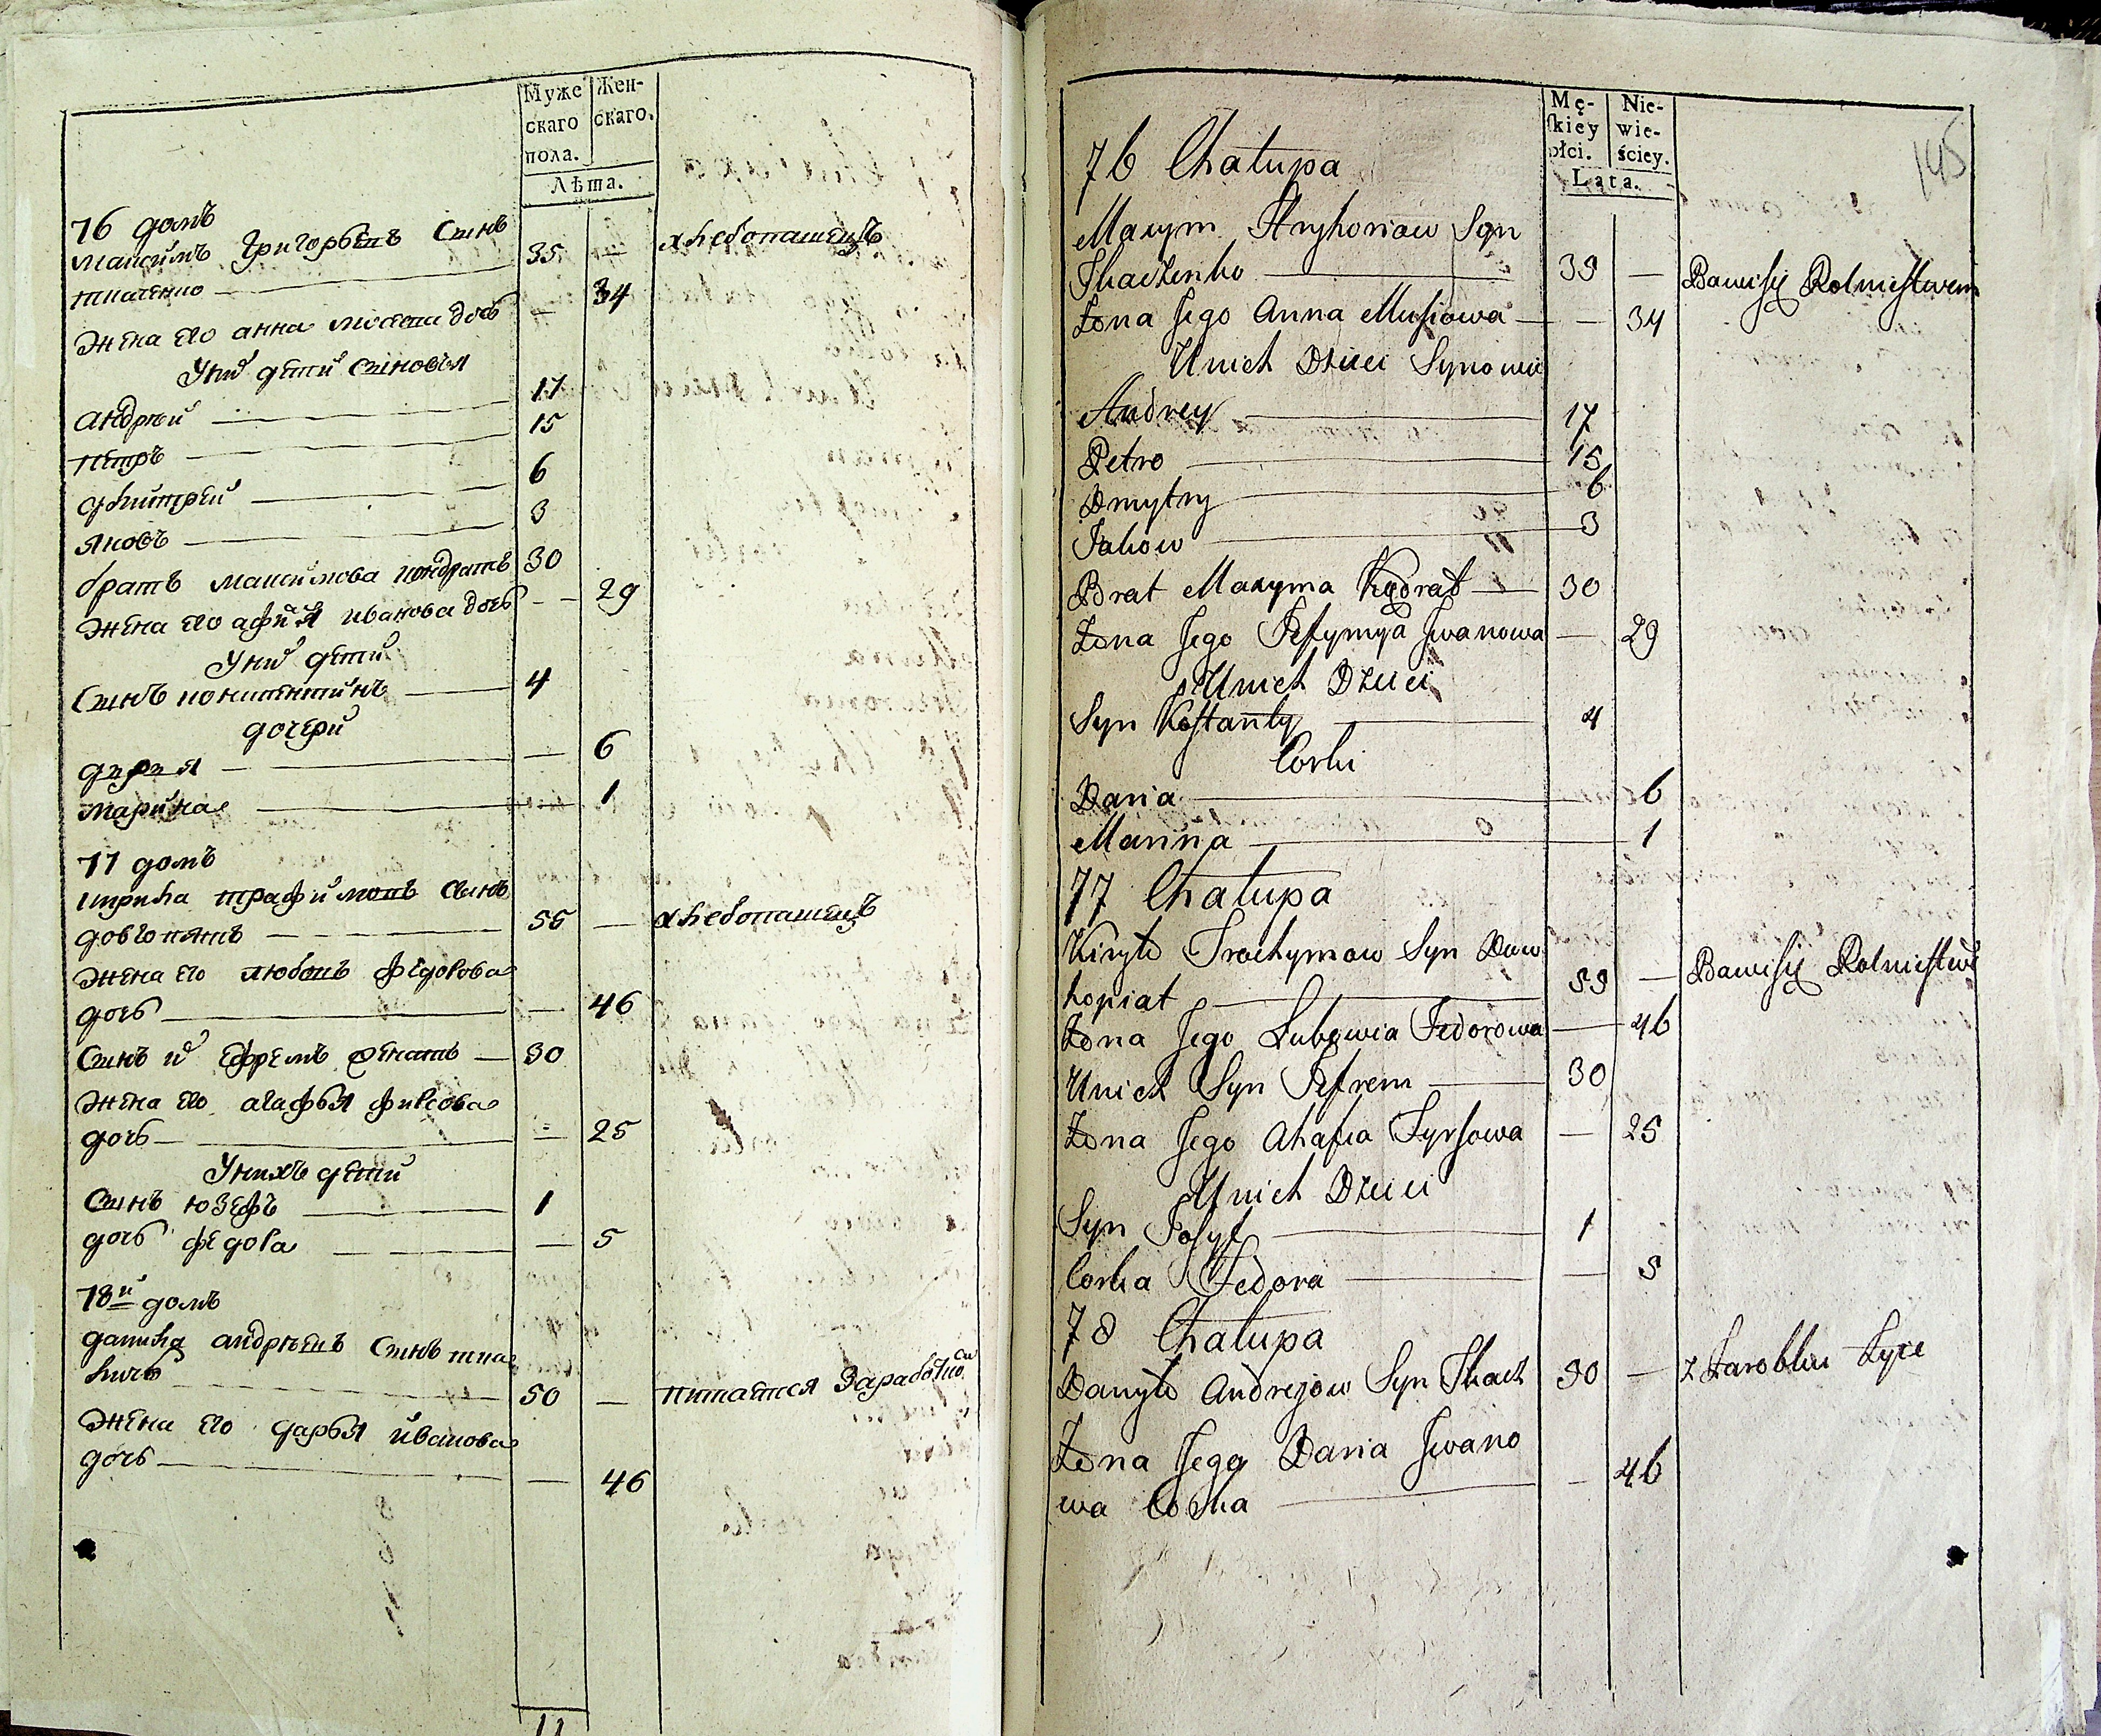 Муже
скаго
пола.
Жен-
скаго.
Лѣта.
76 домъ
максимъ григорьевъ синъ
ткаченко — 35 — хлебопашецъ
жена его анна мосеева дочь — 34
У них дети синовья
андрѣй — 17
петръ — 15
дмитрей — 6
яковъ — 3
братъ максимова кондратъ 30
жена его афимия иванова дочь — 29
У них дети
Синъ константинъ — 4
дочери
дарея — 6
марина — 1
77 домъ
кирила трафимовъ синъ
довгопятъ — 55 — хлебопашецъ
жена его любовь федорова
дочь — 46
Синъ их ефремъ женатъ — 30
жена его агафья фирсова
дочь — 25
У нихъ дети
Синъ юзефъ — 1
дочь федора — 5
78й домъ
данила андрѣевъ синъ тка
личъ — 50 — питается заработко
жена его дарья иванова
дочь — 46
11
Mę-
skiey
płci.
Nie-
wie-
ściey.
Lata.
145
76 Chałupa
Maxym Hryhoriow Syn
Tkaczenko — 35 — Bawi się Rolnictwem
Żona Jego Anna Musiowa — 34
U nich Dzieci Synowie
Andrey — 17
Petro — 15
Dmytry — 6
Jakow — 3
Brat Maxyma Kądrat — 30
Żona Jego Jefymyia Jwanowa — 29
U nich Dzieci
Syn Kostanty — 4
Corki
Daria — 6
Marina — 1
77 Chałupa
Kiryło Trochymow Syn Dow
hopiat — 55 — Bawi się Rolnictwe
Żona Jego Lubowia Fedorowa — 46
U nich Syn Jefrem — 30
Żona Jego Ahafia Fyrsowa — 25
U nich Dzieci
Syn Josyf — 1
Corka Fedora — 5
78 Chałupa
Danyło Andrejow Syn Tkacz 50 — z Zarobku Żyie
Żona Jego Daria Jwano
wa Corka — 46